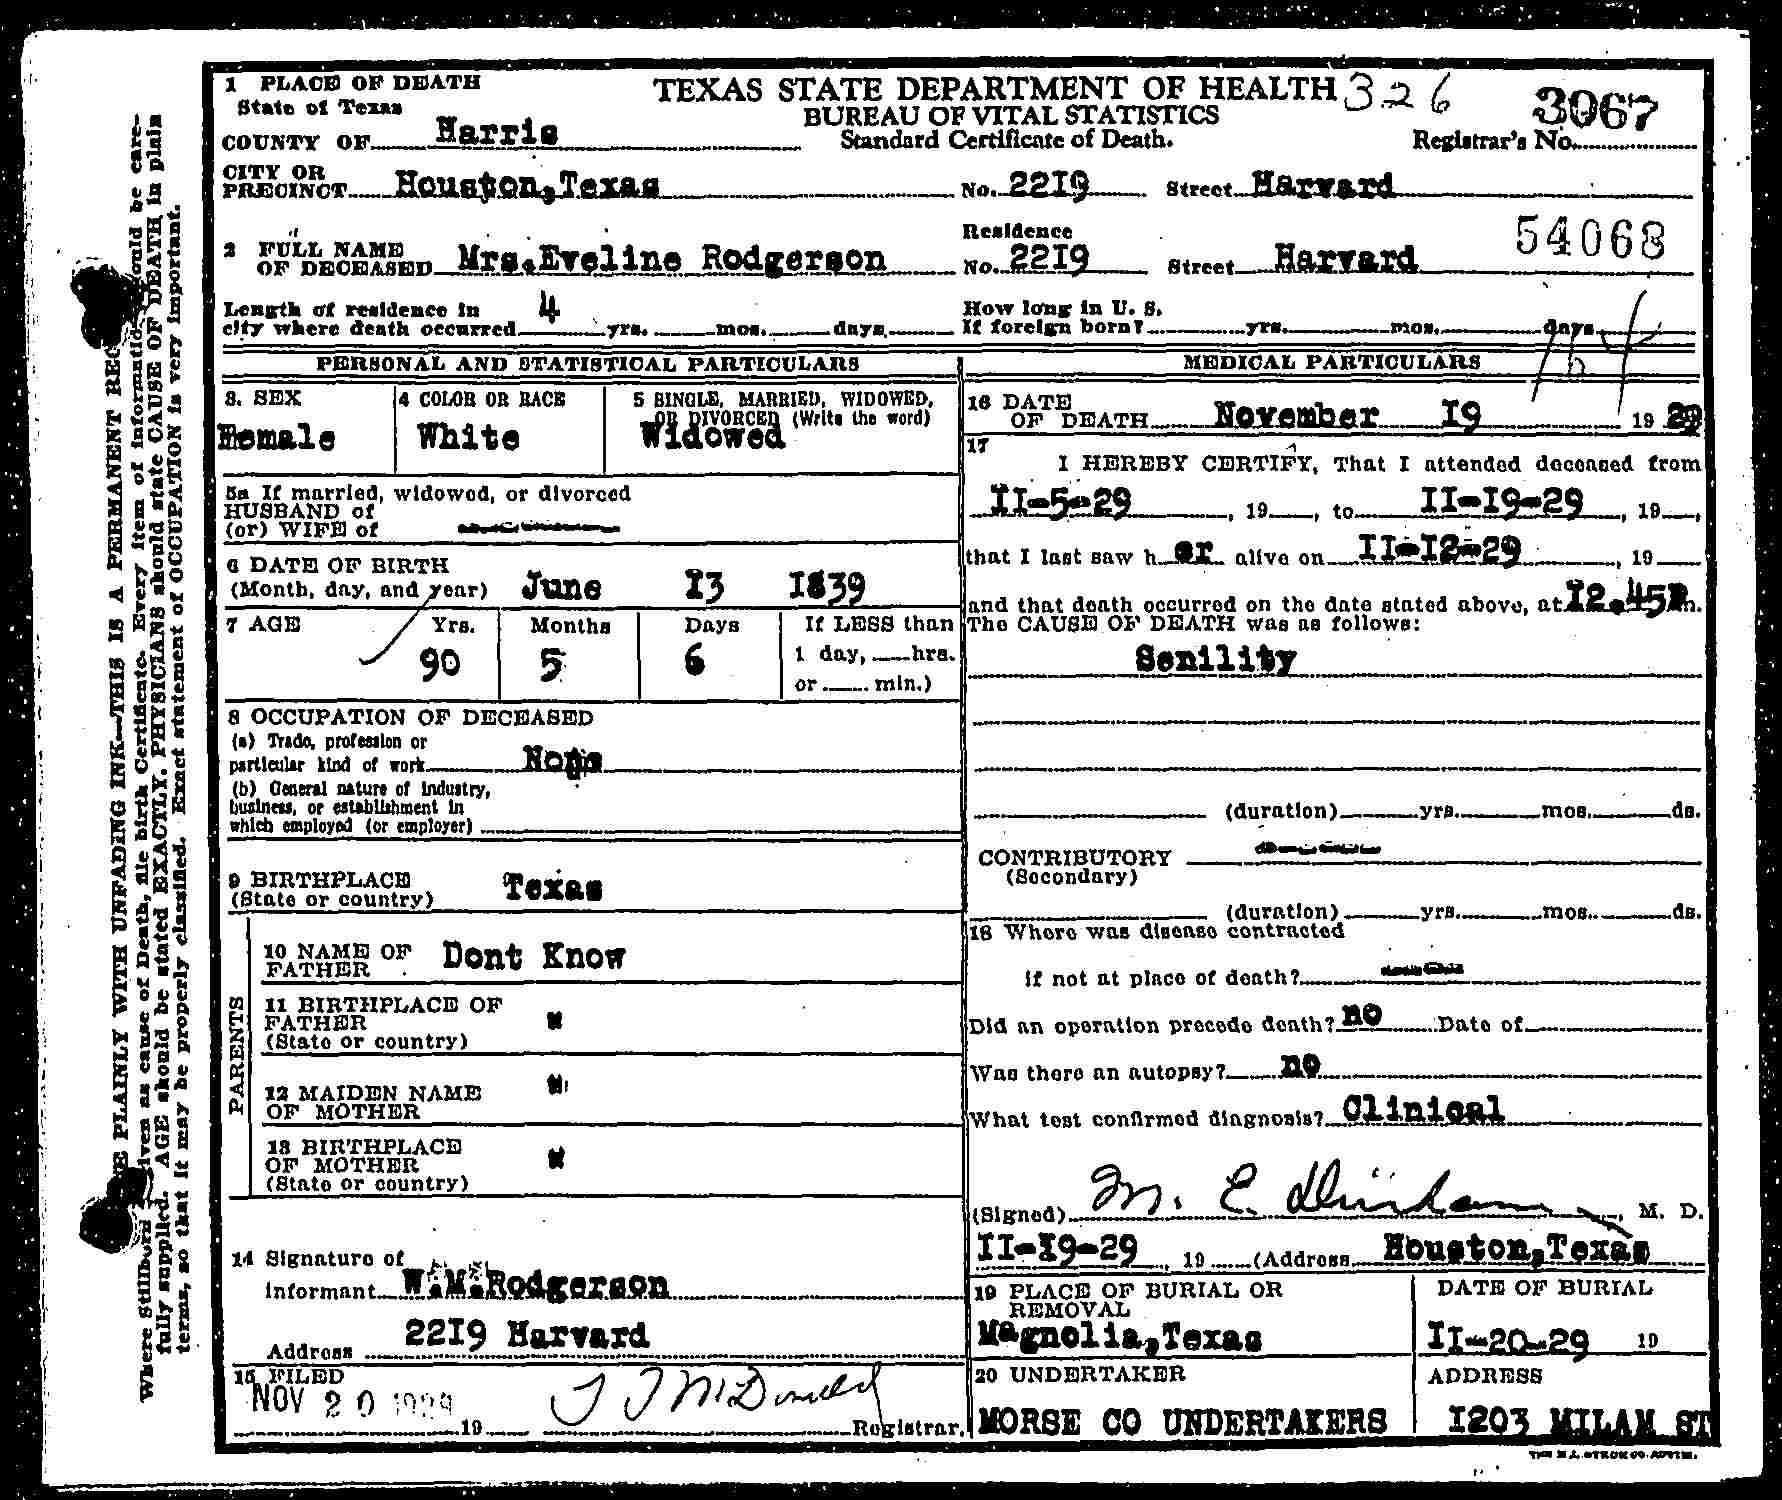 1 PLACE OF DEATH
State of Texas
COUNTY OF Harris
TEXAS STATE DEPARTMENT OF HEALTH 326
BUREAU OF VITAL STATISTICS
Standard Certificate of Death.
3067
Registrar's No.
CITY OR
PRECINCT Houston,Texas No. 22I9 Street Harvard
2 FULL NAME
OF DECEASED Mrs.Eveline Rodgerson
Residence
No. 22I9 Street Harvard
54068
Length of residence in
city where death occurred 4 yrs. mos. days.
How long in U. S.
If foreign born? yrs. mos. days
PERSONAL AND STATISTICAL PARTICULARS
3. SEX
Female
4 COLOR OR RACE
White
5 SINGLE, MARRIED, WIDOWED,
OR DIVORCED (Write the word)
Widowed
5a If married, widowed, or divorced
HUSBAND of
(or) WIFE of
6 DATE OF BIRTH
(Month, day, and year) June I3 I839
7 AGE Yrs. Months Days If LESS than
90 5 6 1 day, hrs.
or min.)
8 OCCUPATION OF DECEASED
(a) Trade, profession or
particular kind of work None
(b) General nature of industry,
business, or establishment in
which employed (or employer)
9 BIRTHPLACE
(State or country) Texas
PARENTS
10 NAME OF
FATHER Dont Know
11 BIRTHPLACE OF
FATHER
(State or country) "
12 MAIDEN NAME
OF MOTHER "
13 BIRTHPLACE
OF MOTHER
(State or country) "
14 Signature of
Informant W.M.Rodgerson
Address 22I9 Harvard
15 FILED
NOV 20 1929 19 Registrar.
MEDICAL PARTICULARS
16 DATE
OF DEATH November I9 19 29
17
I HEREBY CERTIFY, That I attended deceased from
II-5-29, 19, to II-I9-29, 19,
that I last saw her alive on II-I2-29, 19
and that death occurred on the date stated above, at I2.45P m.
The CAUSE OF DEATH was as follows:
Senility
(duration) yrs. mos. ds.
CONTRIBUTORY
(Secondary)
(duration) yrs. mos. ds.
18 Where was disease contracted
if not at place of death?
Did an operation precede death? no Date of
Was there an autopsy? no
What test confirmed diagnosis? Clinical
(Signed) M. E. Durham, M. D.
II-I9-29, 19 (Address Houston,Texas
19 PLACE OF BURIAL OR
REMOVAL
Magnolia,Texas
DATE OF BURIAL
II-20-29 19
20 UNDERTAKER
MORSE CO UNDERTAKERS
ADDRESS
I203 MILAM ST
PLAINLY WITH UNFADING INK—THIS IS A PERMANENT
Where Stillborn given as cause of Death, file birth Certificate. Every item of information should be care-
fully supplied. AGE should be stated EXACTLY. PHYSICIANS should state CAUSE OF DEATH in plain
terms, so that it may be properly classified. Exact statement of OCCUPATION is very important.